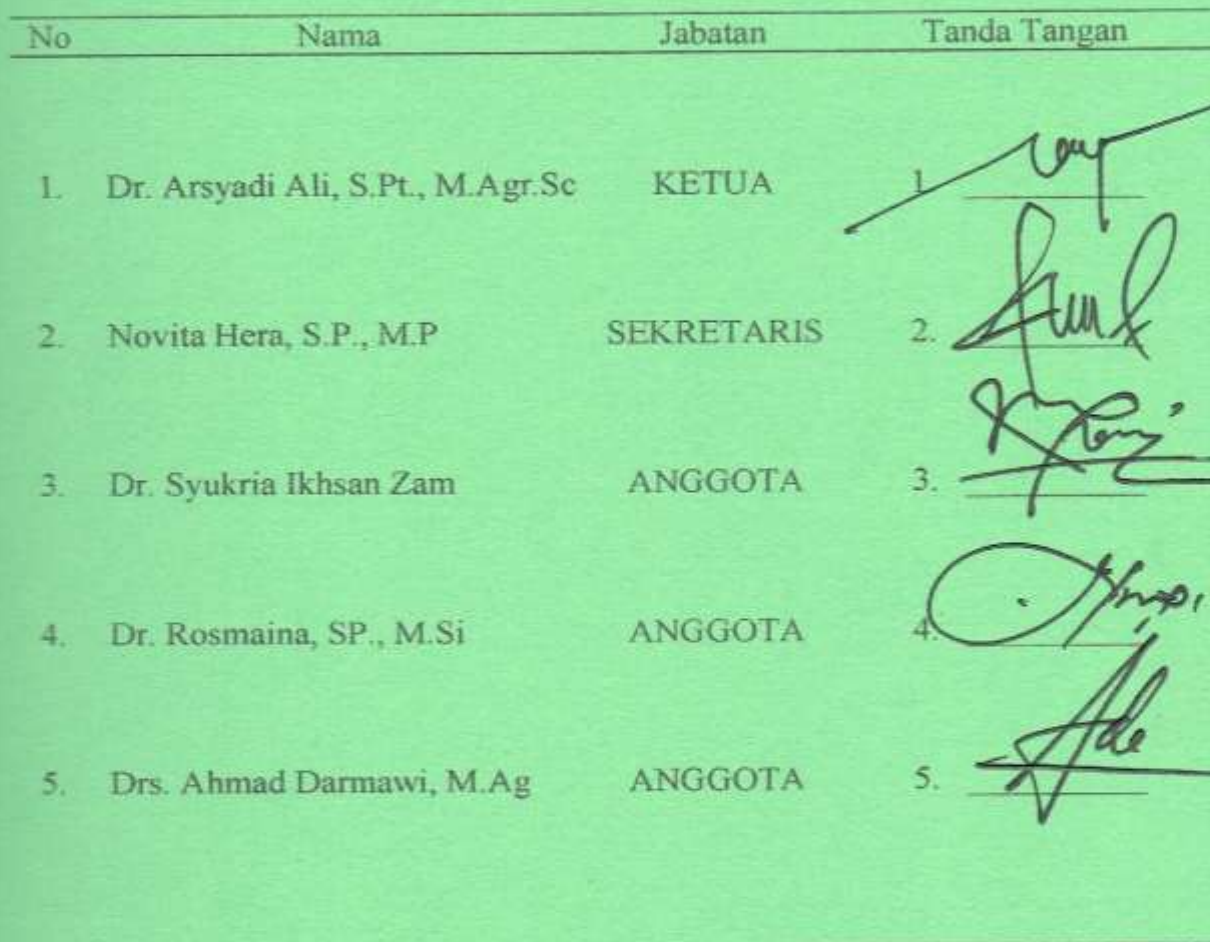 No Nama Jabatan Tanda Tangan
1. Dr. Arsyadi Ali, S.Pt., M.Agr.Sc KETUA 1.
2. Novita Hera, S.P., M.P SEKRETARIS 2.
3. Dr. Syukria Ikhsan Zam ANGGOTA 3.
4. Dr. Rosmaina, SP., M.Si ANGGOTA 4.
5. Drs. Ahmad Darmawi, M.Ag ANGGOTA 5.